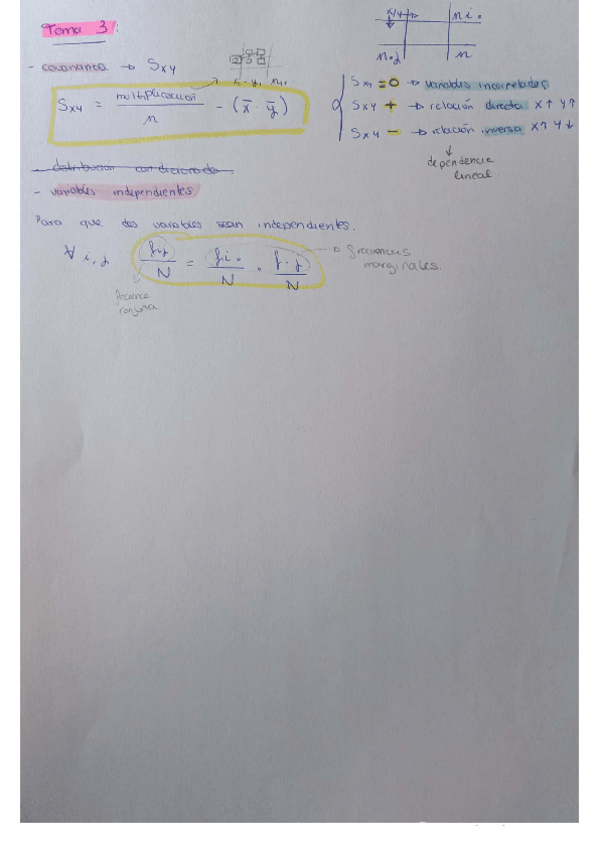 Tema 3:
x/y → ni.
n.j n
- covarianza → Sxy
xi · yj · nij
Sxy = multiplicación / n - (x̄ · ȳ)
Sxy = 0 → variables incorreladas
Sxy + → relación directa x↑ y↑
Sxy - → relación inversa x↑ y↓
dependencia
lineal.
- distribución condicionada
- variables independientes
Para que dos variables sean independientes.
∀ i, j fij / N = fi. / N · f.j / N → frecuencias
marginales.
frecuencia
conjunta